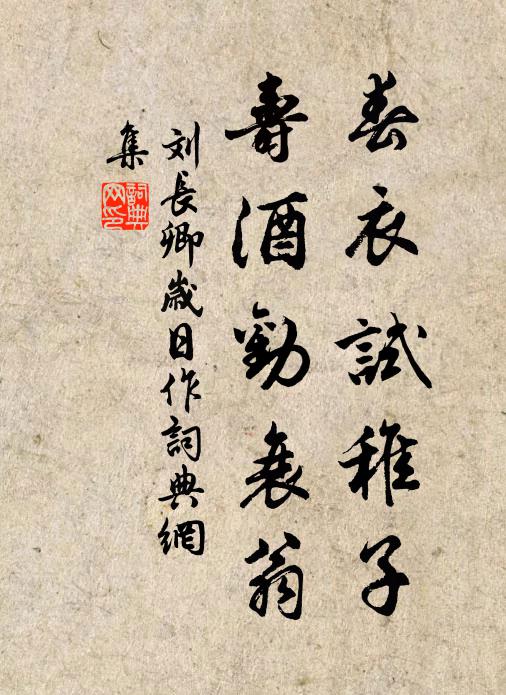 春衣試稚子
壽酒勸衰翁
刘長卿歲日作詞典網
集
詞典
网印